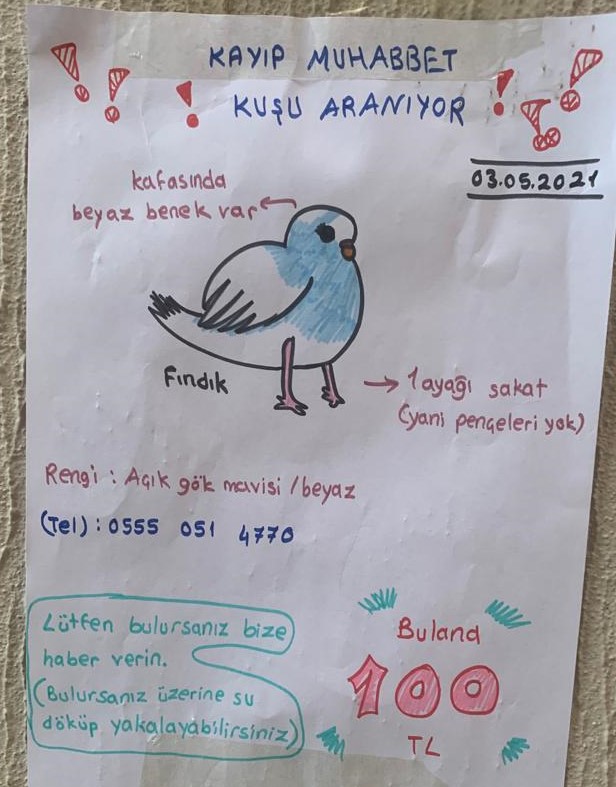 KAYIP MUHABBET
KUŞU ARANIYOR
03.05.2021
kafasında
beyaz benek var
Fındık
1 ayağı sakat
(yani pençeleri yok)
Rengi : Açık gök mavisi / beyaz
(Tel) : 0555 051 4770
Lütfen bulursanız bize
haber verin.
(Bulursanız üzerine su
döküp yakalayabilirsiniz)
Buland
100
TL